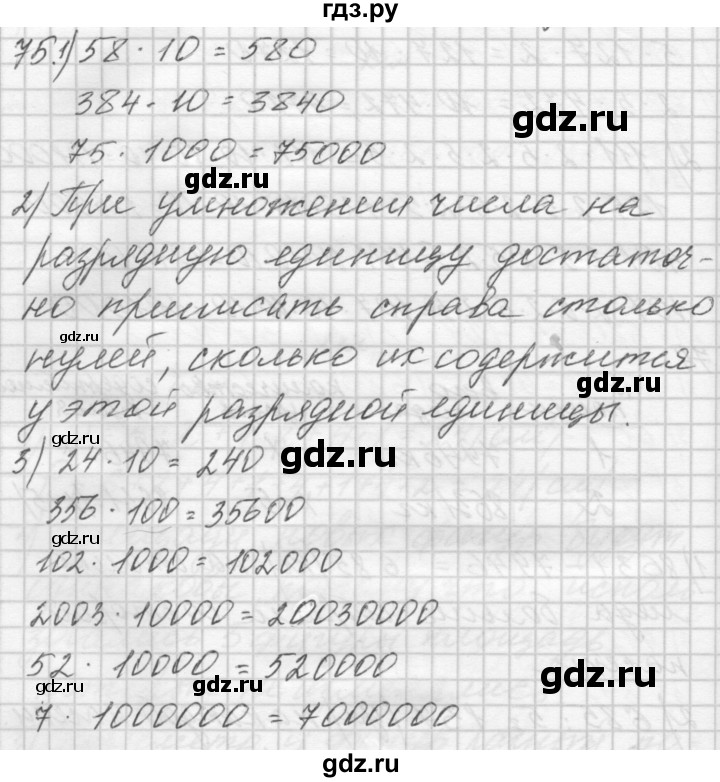 гдз.ру
75.1) 58 · 10 = 580
384 · 10 = 3840
gdz.ru
75 · 1000 = 75000
gdz.ru
2) При умножении числа на
разрядную единицу достаточ-
но приписать справа столько
gdz.ru
нулей, сколько их содержится
gdz.ru
у этой разрядной единицы.
gdz.ru
3) 24 · 10 = 240
gdz.ru
356 · 100 = 35600
gdz.ru
102 · 1000 = 102000
2003 · 10000 = 20030000
52 · 10000 = 520000
gdz.ru
gdz.ru
gdz.ru
7 · 1000000 = 7000000